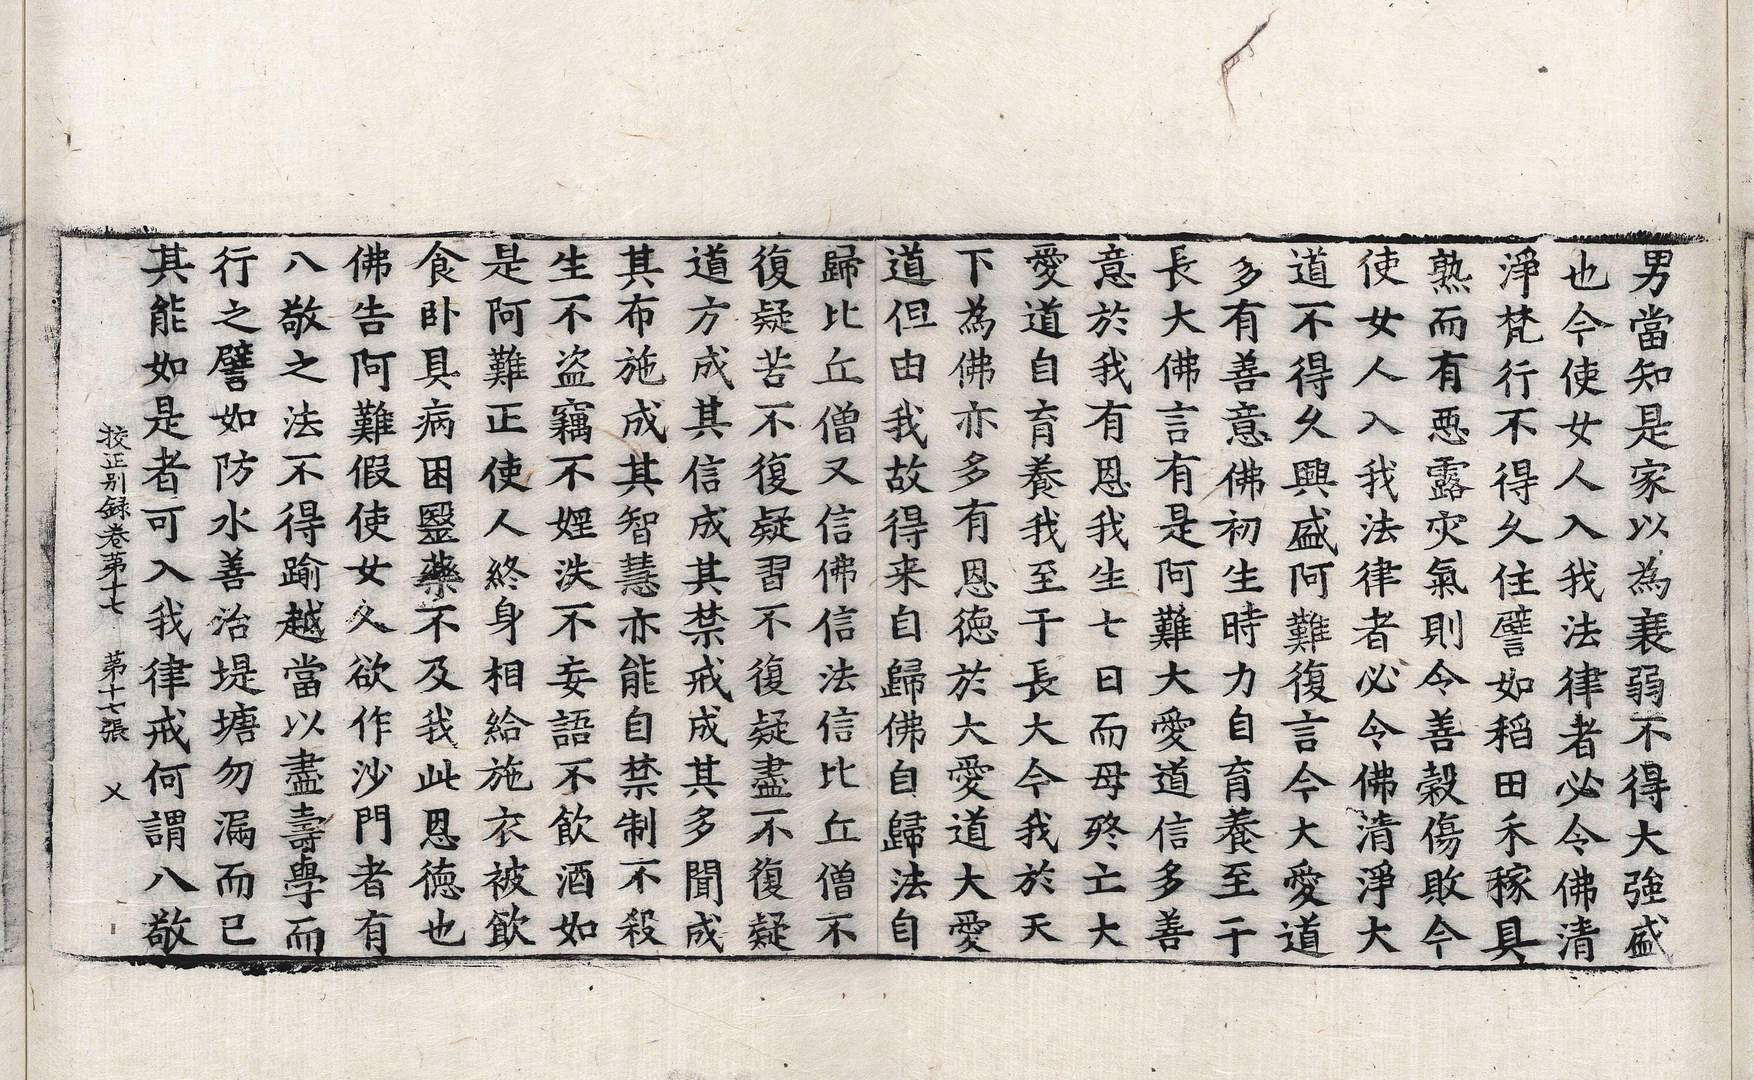 男當知是家以為衰弱不得大強盛
也今使女人入我法律者必令佛清
淨梵行不得久住譬如稻田禾稼具
熟而有惡露灾氣則令善穀傷敗今
使女人入我法律者必令佛清淨大
道不得久興盛阿難復言今大愛道
多有善意佛初生時力自育養至于
長大佛言有是阿難大愛道信多善
意於我有恩我生七日而母終亡大
愛道自育養我至于長大今我於天
下為佛亦多有恩德於大愛道大愛
道但由我故得来自歸佛自歸法自
歸比丘僧又信佛信法信比丘僧不
復疑苦不復疑習不復疑盡不復疑
道方成其信成其禁戒成其多聞成
其布施成其智慧亦能自禁制不殺
生不盜竊不婬泆不妄語不飲酒如
是阿難正使人終身相給施衣被飲
食卧具病困毉藥不及我此恩德也
佛告阿難假使女人欲作沙門者有
八敬之法不得踰越當以盡壽學而
行之譬如防水善治堤塘勿漏而已
其能如是者可入我律戒何謂八敬
挍正别録卷苐十七　苐十七張　乂